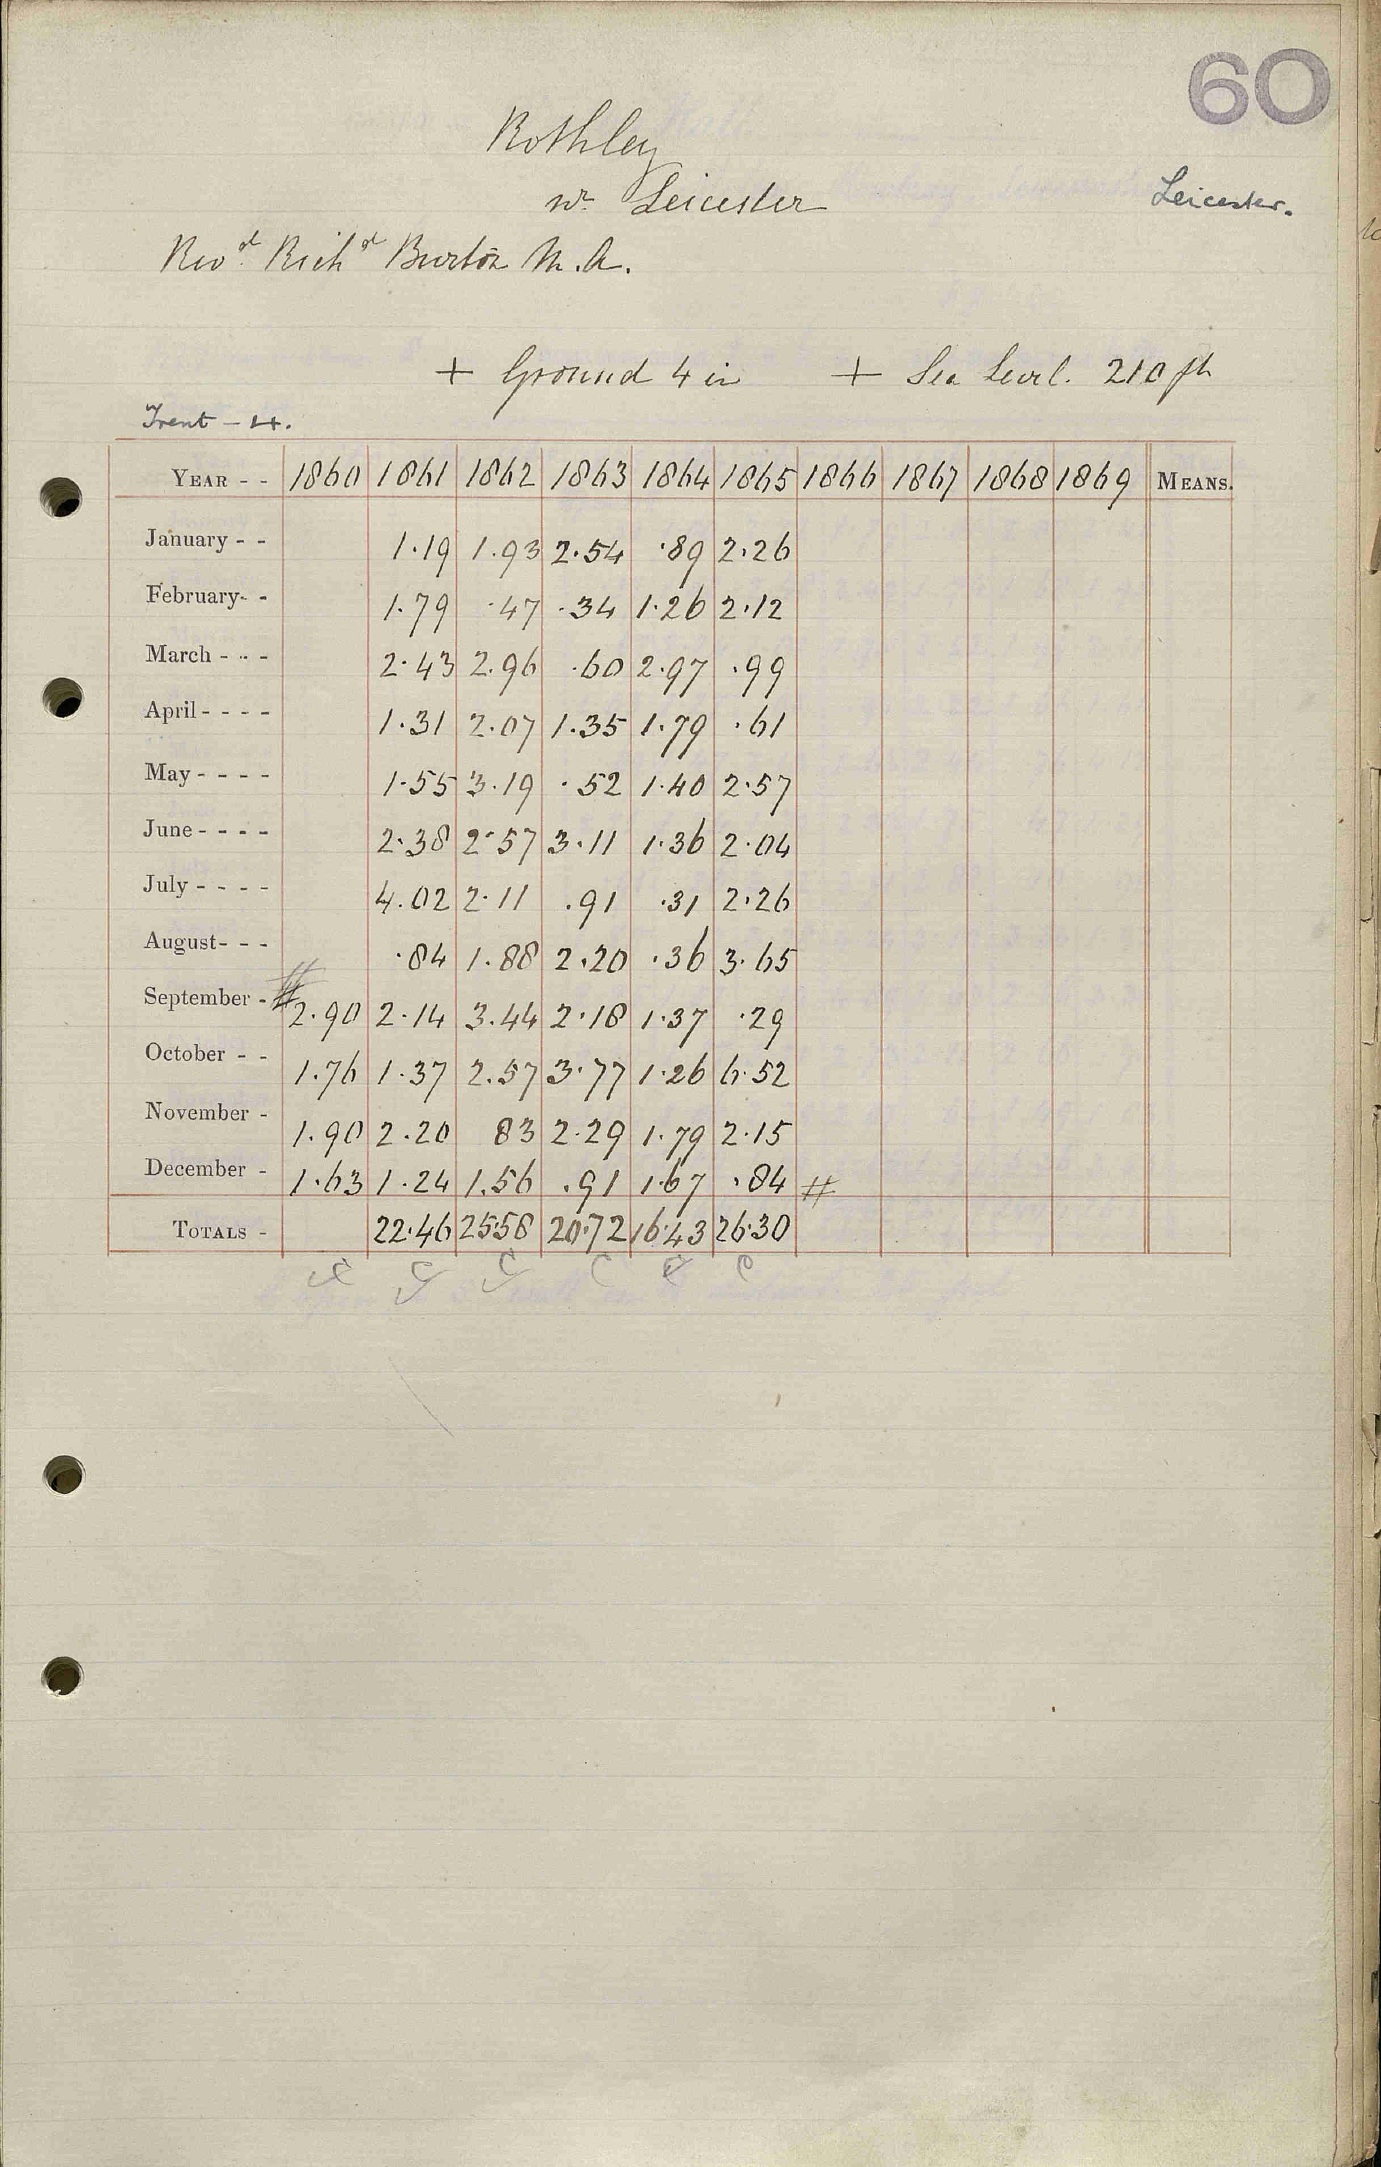 60
Rothley
nr Leicester
Leicester.
Revd. Richd Burton M.A.
+ Ground 4 in + Sea Level. 210 ft
Trent - 4.
YEAR - - 1860 1861 1862 1863 1864 1865 1866 1867 1868 1869 MEANS.
January - - 1.19 1.93 2.54 .89 2.26
February- - 1.79 .47 .34 1.26 2.12
March - - - 2.43 2.96 .60 2.97 .99
April - - - - 1.31 2.07 1.35 1.79 .61
May - - - - 1.55 3.19 .52 1.40 2.57
June - - - - 2.38 2.57 3.11 1.36 2.04
July - - - - 4.02 2.11 .91 .31 2.26
August- - - .84 1.88 2.20 .36 3.65
September - # 2.90 2.14 3.44 2.18 1.37 .29
October - - 1.76 1.37 2.57 3.77 1.26 6.52
November - 1.90 2.20 83 2.29 1.79 2.15
December - 1.63 1.24 1.56 .91 1.67 .84 #
TOTALS - 22.46 25.58 20.72 16.43 26.30